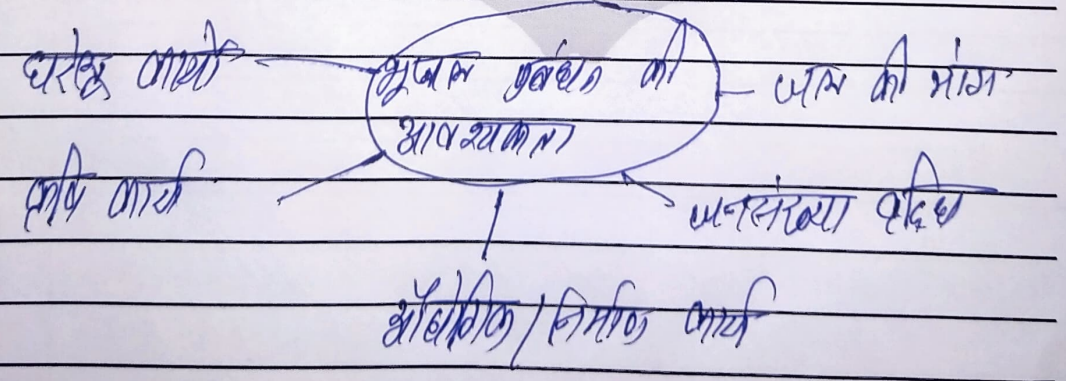 घरेलू कार्यो
भूजल प्रबंधन की
आवश्यकता
जल की मांग
कृषि कार्य
जनसंख्या वृद्धि
औद्योगिक/निर्माण कार्य